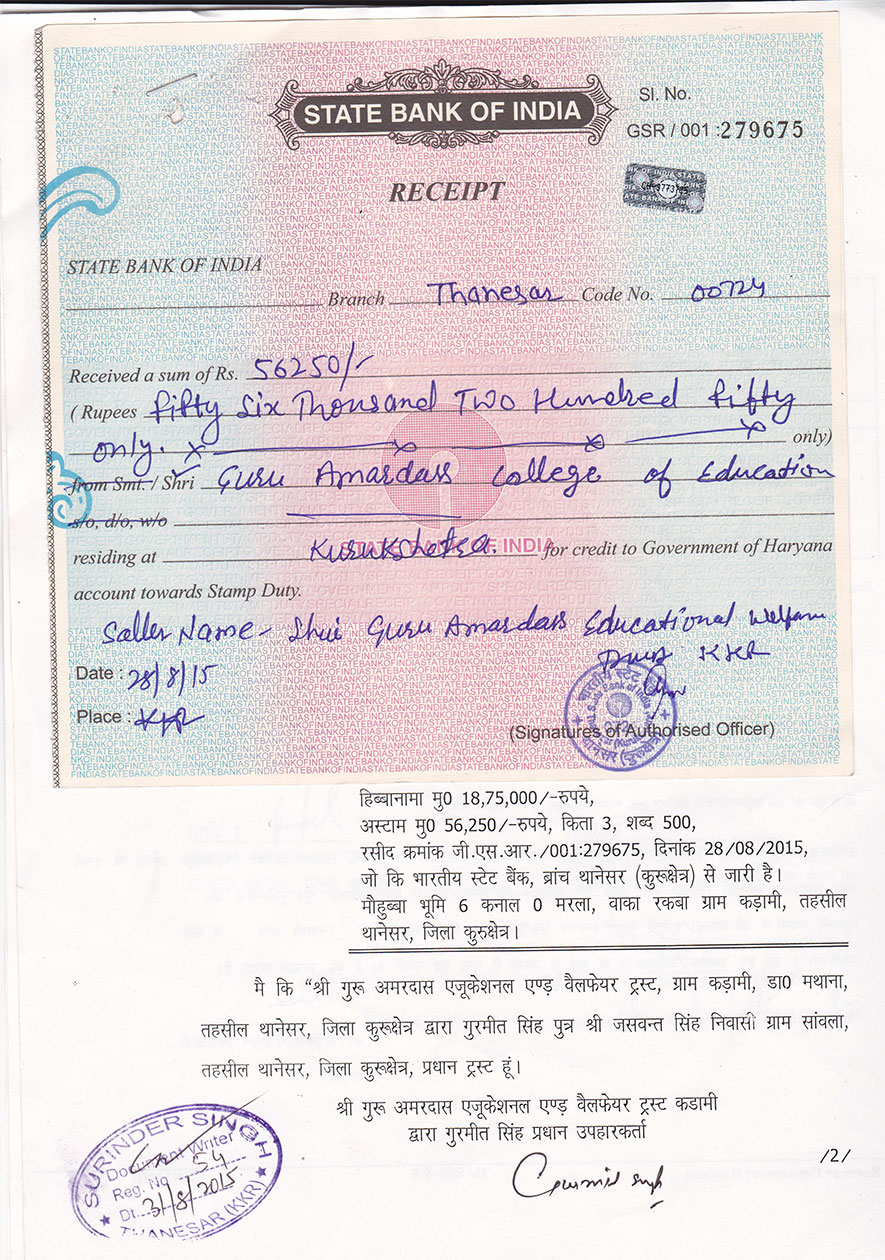 STATE BANK OF INDIA
Sl. No.
GSR / 001 :279675
RECEIPT
STATE BANK OF INDIA
Branch Thanesar Code No. 00724
Received a sum of Rs. 56250/-
( Rupees Fifty Six Thousand Two Hundred Fifty
only. only)
from Smt. / Shri Guru Amardass College of Education
s/o, d/o, w/o
residing at Kurukshetra. for credit to Government of Haryana
account towards Stamp Duty.
Saller Name - Shri Guru Amardass Educational Welfare
KKR
Date : 28/8/15
Place : KKR
(Signatures of Authorised Officer)
हिब्बानामा मु0 18,75,000/-रुपये,
अस्टाम मु0 56,250/-रुपये, किता 3, शब्द 500,
रसीद क्रमांक जी.एस.आर./001:279675, दिनांक 28/08/2015,
जो कि भारतीय स्टेट बैंक, ब्रांच थानेसर (कुरूक्षेत्र) से जारी है।
मौहुब्बा भूमि 6 कनाल 0 मरला, वाका रकबा ग्राम कड़ामी, तहसील
थानेसर, जिला कुरुक्षेत्र।
मै कि “श्री गुरू अमरदास एजूकेशनल एण्ड वैलफेयर ट्रस्ट, ग्राम कड़ामी, डा0 मथाना,
तहसील थानेसर, जिला कुरूक्षेत्र द्वारा गुरमीत सिंह पुत्र श्री जसवन्त सिंह निवासी ग्राम सांवला,
तहसील थानेसर, जिला कुरूक्षेत्र, प्रधान ट्रस्ट हूं।
श्री गुरू अमरदास एजूकेशनल एण्ड वैलफेयर ट्रस्ट कडामी
द्वारा गुरमीत सिंह प्रधान उपहारकर्ता
/2/
Gurmit Singh
SURINDER SINGH
Document Writer
Reg. No 54
Dt. 31/8/2015
THANESAR (KKR)